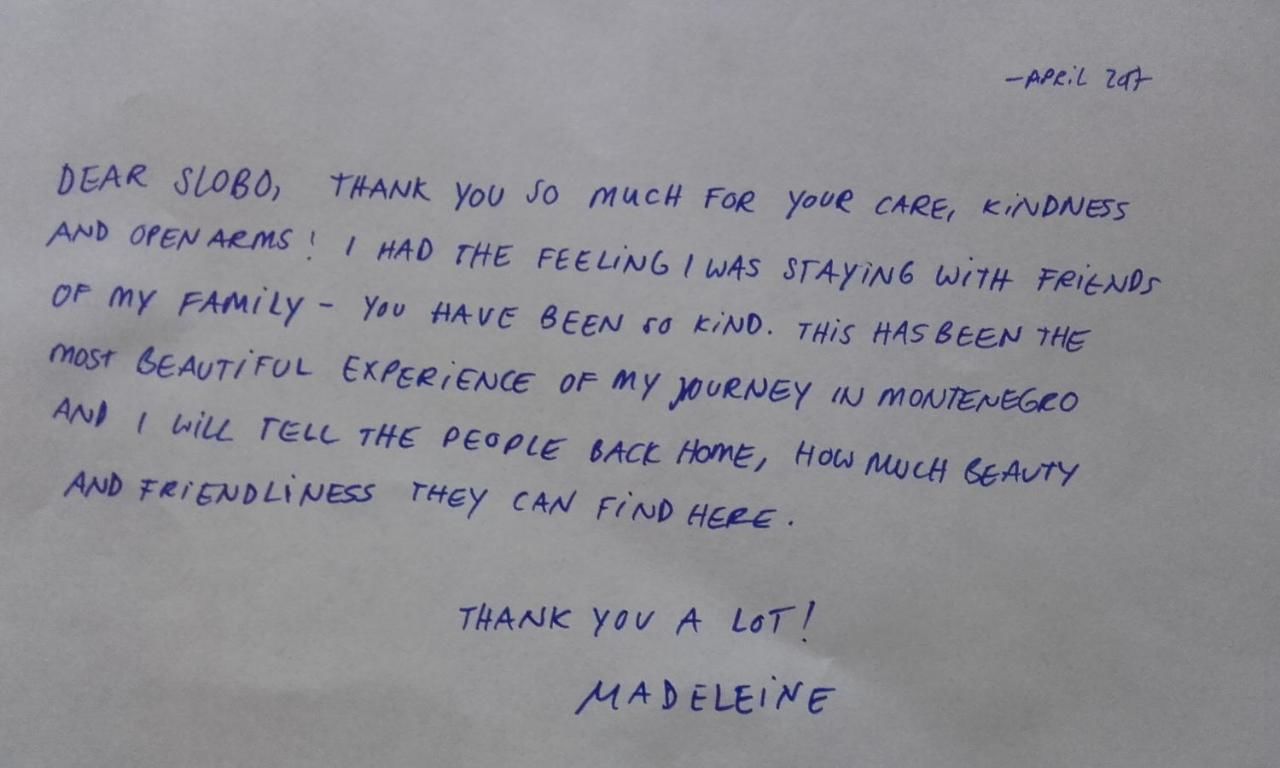 - APRiL 2017
DEAR SLOBO, THANK YOU SO MUCH FOR YOUR CARE, KiNDNESS
AND OPEN ARMS! I HAD THE FEELiNG I WAS STAYiNG WiTH FRiENDS
OF MY FAMiLY - YOU HAVE BEEN SO KiND. THiS HAS BEEN THE
MOST BEAUTiFUL EXPERiENCE OF MY JOURNEY IN MONTENEGRO
AND I WiLL TELL THE PEOPLE BACK HOME, HOW MUCH BEAUTY
AND FRiENDLiNESS THEY CAN FiND HERE.
THANK YOU A LOT!
MADELEiNE